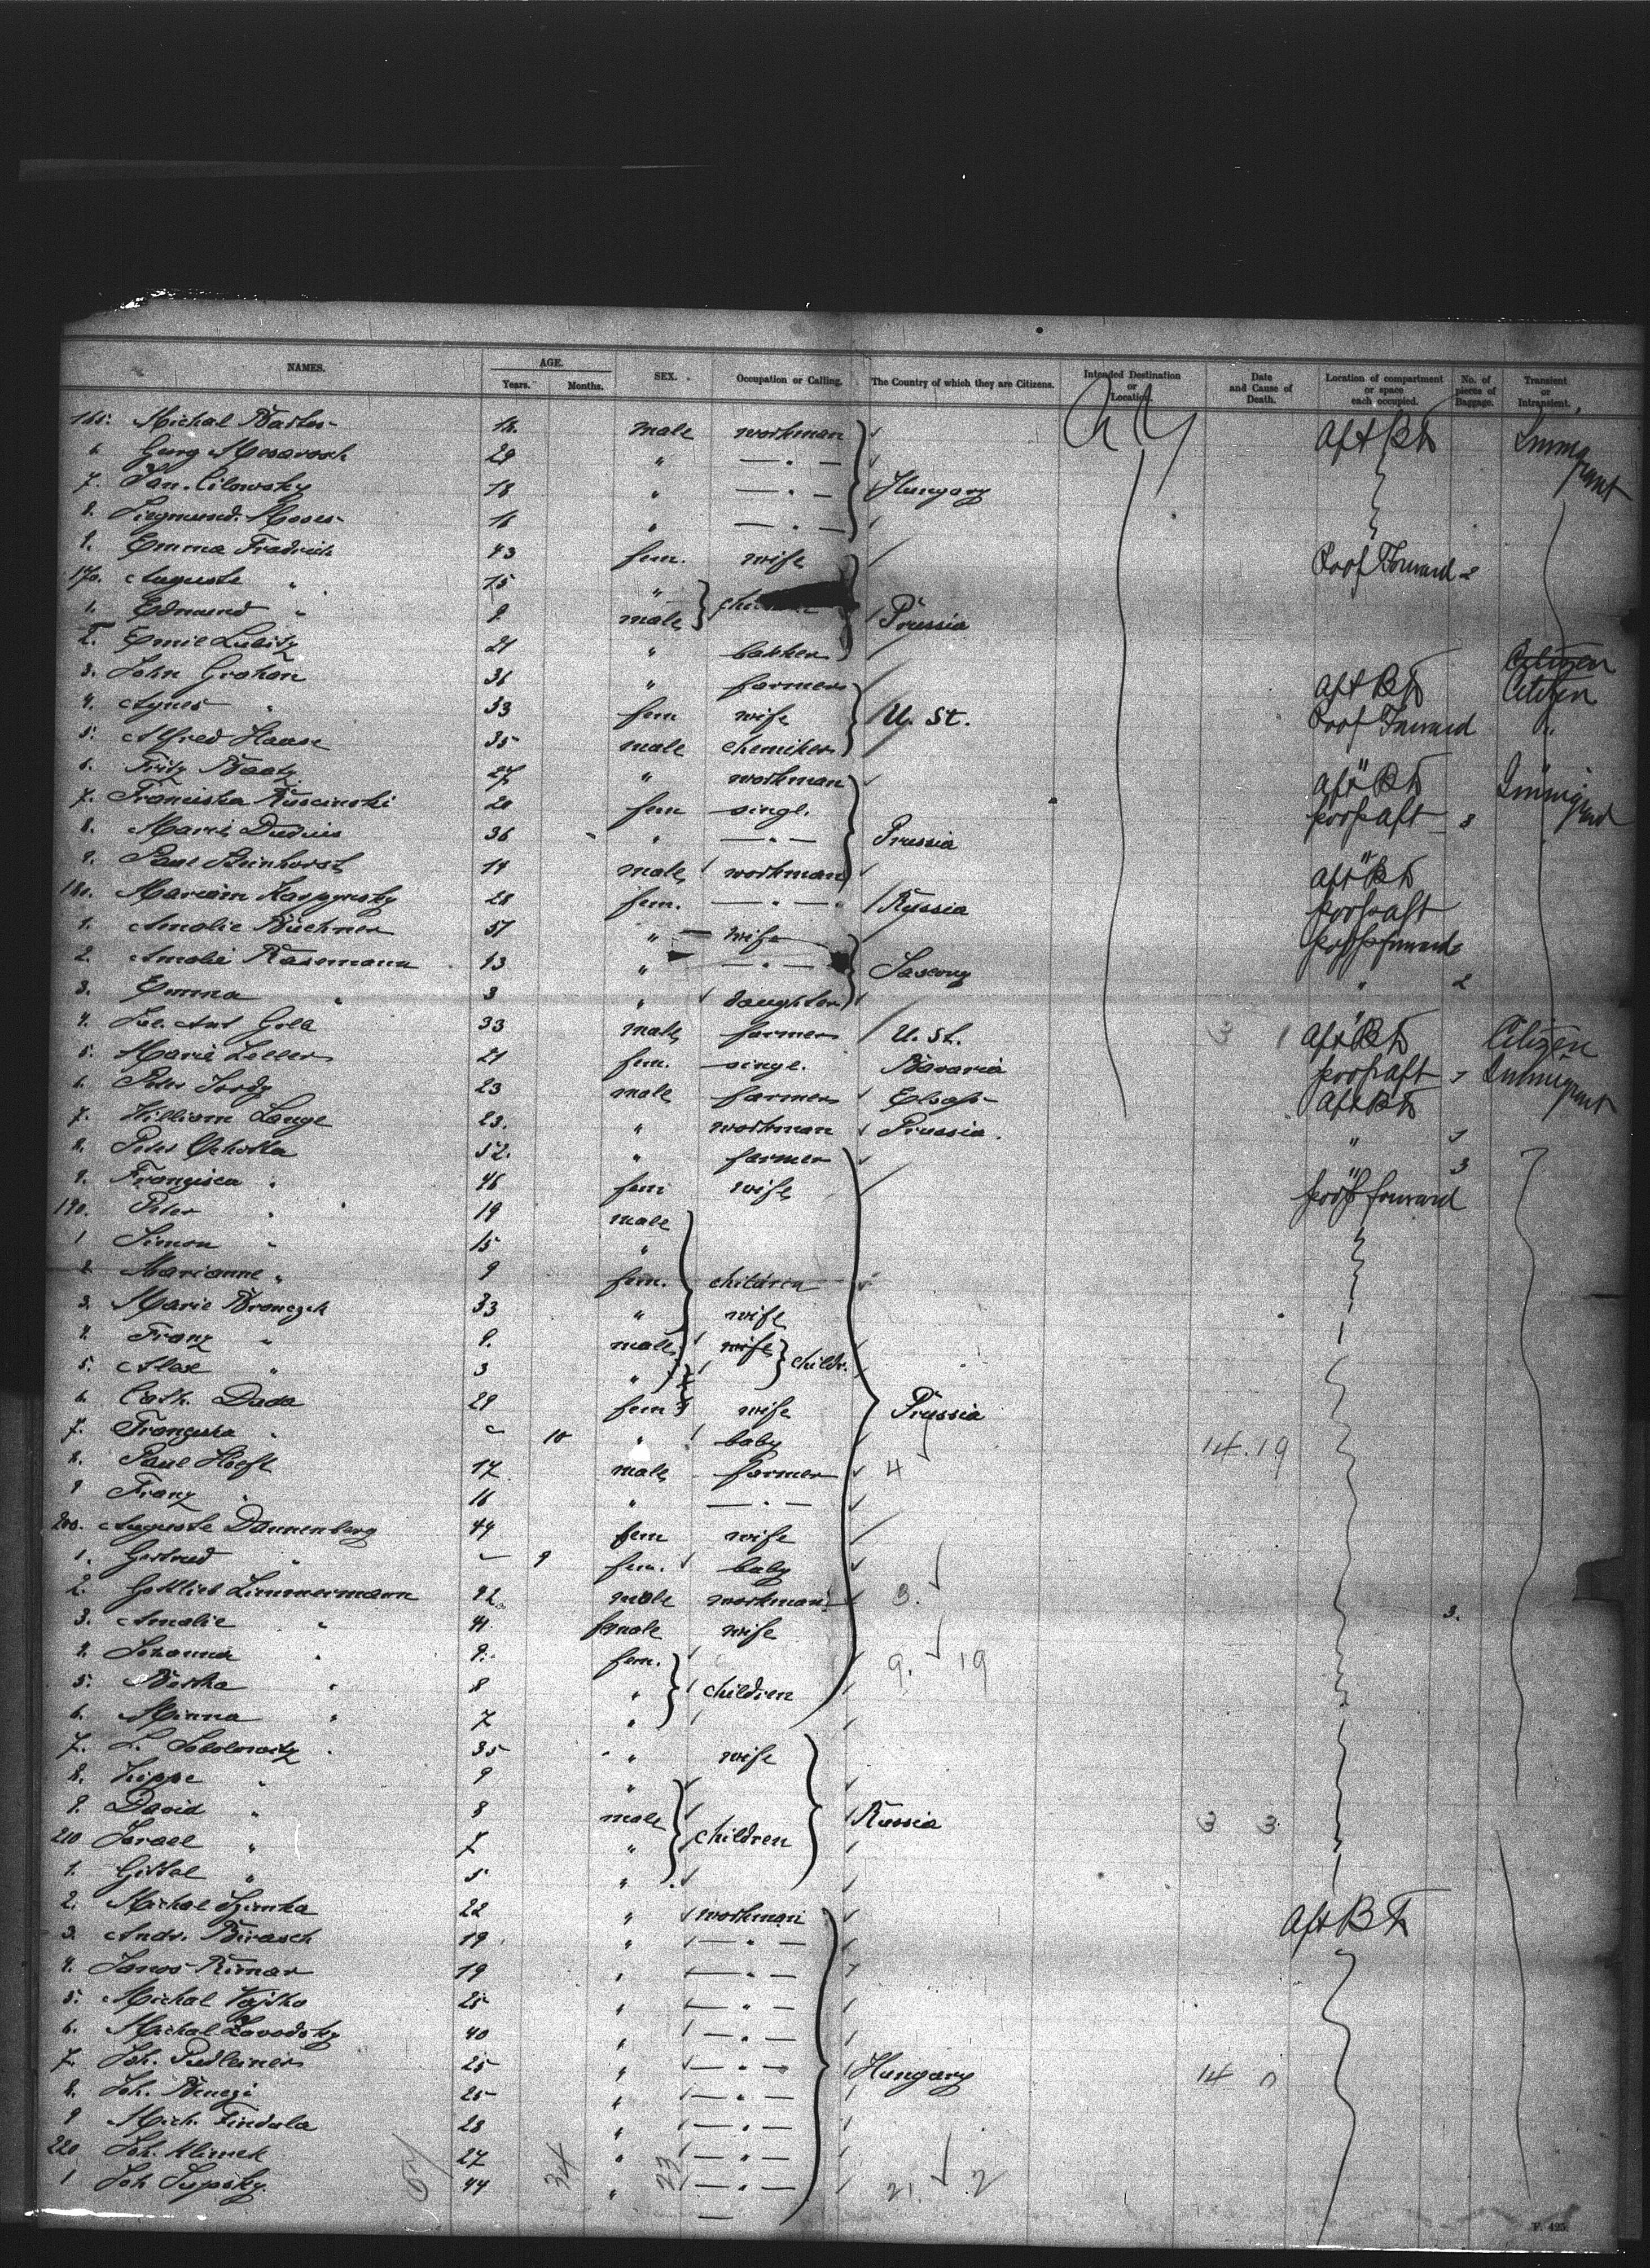 NAMES. AGE. SEX. Occupation or Calling. The Country of which they are Citizens. Intended Destination or Location. Date and Cause of Death. Location of compartment or space each occupied. No. of pieces of Baggage. Transient or Intransient.
Years. Months.
165. Michal Bartos 18. male workman NY Aft B D Immigrant
6. Georg Mesarosch 29 " — " —
7. Jan. Cilowsky 18 " — " — Hungary
8. Siegmund Moses 16 " — " —
9. Emma Fradrich 43 fem. wife Poop Forward 2
170. Auguste " 15 "
1. Edmund " 9 male Prussia
2. Emil Lubitz 21 " bakker Citizen
3. John Grahan 36 " farmer Aft B D Citizen
4. Agnes " 33 fem wife U. St. Poop Forward "
5. Alfred Haase 35 male chemiker "
6. Fritz Baatz 27 " workman Aft B D Immigrant
7. Franciska Ruscinski 20 fem singl. poop aft 3
8. Marie 36 " — " — Prussia "
9. Paul Steinhorst 14 male workman Aft B D
180. Mariann 28 fem. — " — Russia poop aft
1. Amalie Büchner 51 " wife poop forward
2. Amalie Rasemann 13 " — " — Saxony
3. Emma " 3 " daughter " 2
4. Jul. Aut Golla 33 male farmer U. St. 3 1 Aft B D Citizen
5. Marie Zeller 21 fem. singl. Bavaria poop aft 1 Immigrant
6. Peter 23 male farmer Elsass Aft B D
7. William Lange 23. " workman Prussia. " 1
8. Peter 52. " farmer " 3
9. Franzisca " 46 fem wife poop forward
190. Peter " 19 male
1 Simon " 15 "
2 Marianne " 9 fem. children
3. Marie Bronczek 33 " wife
4. Franz " 9. male wife childr.
5. " 3 "
6. Cath. Dada 29 fem wife Prussia
7. Franziska " - 10 " baby 14.19
8. Paul Hoeft 17 male farmer 4
9 Franz " 16 " — " —
200. Auguste Dannenberg 44 fem wife
1. Gertrud " - 9 fem. baby
2. Gottlieb Zimmermann 42 male workman 3. 3.
3. Amalie " 41 female wife
4. Johanna " 9. fem. 9. 19
5. Bertha " 8 " children
6. Minna " 7 "
7. L. Sokolowitz 35 " wife
8. Zippe " 9 "
9. David " 8 male Russia 3 3
210 Israel " 7 " children
1. Gittel " 5 "
2. Michal 22 " workman Aft B D
3. Andr. Birasch 19 " — " —
4. Janos Rimar 19 " — " —
5. Michal Vojtko 25 " — " —
6. Michal Zavodsky 40 " — " —
7. Joh. 25 " — " — Hungary 14 0
8. Joh. 25 " — " —
9 Mich. Findula 28 " — " —
220 Joh. Klimek 27 " — " —
1 Joh 44 " — " — 21. 2
57 34 23
F. 425.